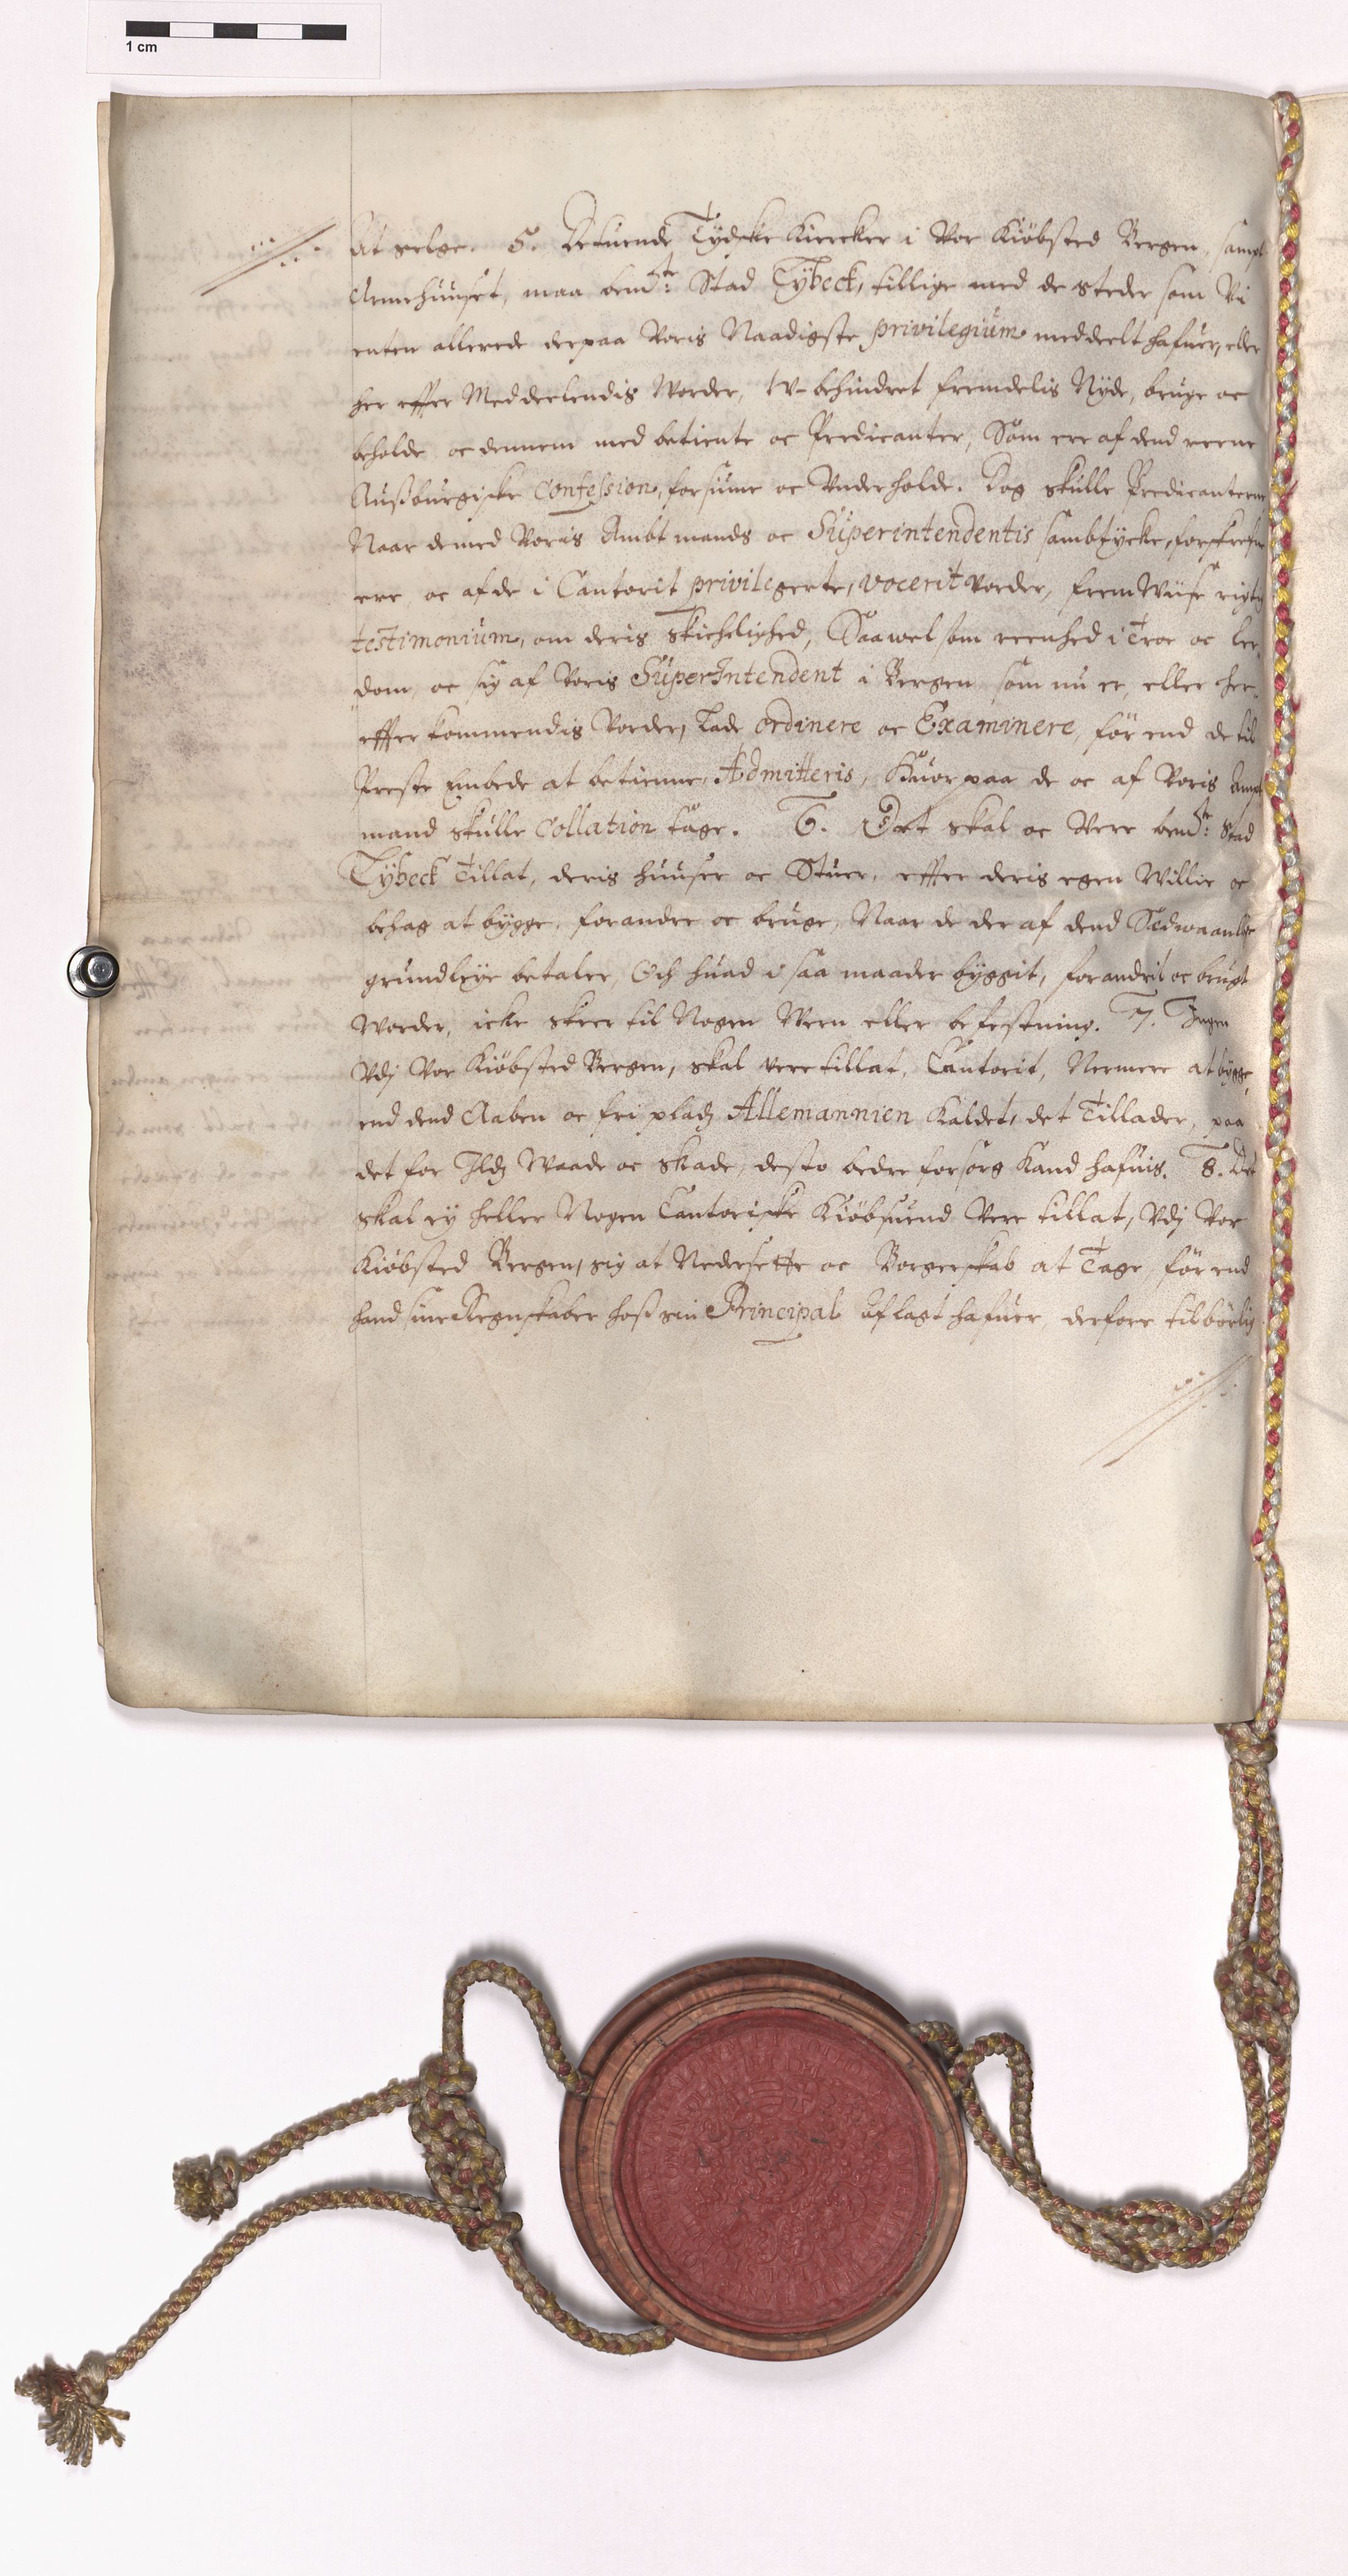 1 cm
at selge. 5. De tuende Tydske Kiercker i Vor Kiöbsted Bergen, sampt
Armehuuset, maa bemte: Stad Lybeck, tillige med de steder som Vi
enten allerede derpaa Voris Naadigste privilegium meddeelt hafuer, eller
her effter Meddeelendis Vorder, W-behindret fremdelis Nyde, bruge oc
beholde, oc dennem med betiente oc Predicanter, Som ere af dend reene
Außburgiske Confession, forsiune oc Underholde. Dog skulle Predicanterne
Naar de med Voris Ambtmands oc Superintendentis sambtycke, forskrefne
ere, oc af de i Cantorit privilegerte, vocerit vorder, fremviise rigtig
testimonium, om deris Skickelighed, Saa vel som reenhed i Troe oc ler-
dom, oc sig af Voris SuperIntendent i Bergen, som nu er, eller her-
effter kommendis Vorder, Lade ordinere oc Examinere, för end de til
Preste Embede at betienne, Admitteris, Huor paa de oc af Voris Ampt
mand skulle Collation tage. 6. Det skal oc Vere bemte: Stad
Lybeck Tillat, deris huuser oc Stuer, effter deris egen Willie oc
behag at bygge, forandre oc bruge, Naar de der af dend Sædwaanlige
grundleye betaler, Och huad i saa maader byggit, forandrit oc brugt
Vorder, icke skeer til Nogen Vern eller befestning. 7. Ingen
Udj Vor Kiöbsted Bergen, skal vere tillat, Cantorit, Nermere at bygge,
end dend Aaben oc fri pladz Allemannien Kaldet, det Tillader, paa
det for Ildz Waade oc skade, desto bedre forsorg Kand hafuis. 8. Det
skal ey heller Nogen Cantoriske Kiöbsuend Vere tillat, Udj Vor
Kiöbsted Bergen, sig at Nedersette oc Borgerskab at Tage, för end
hand sine Regnskaber hoß sin Principal aflagt hafuer, derfore tilbörlig